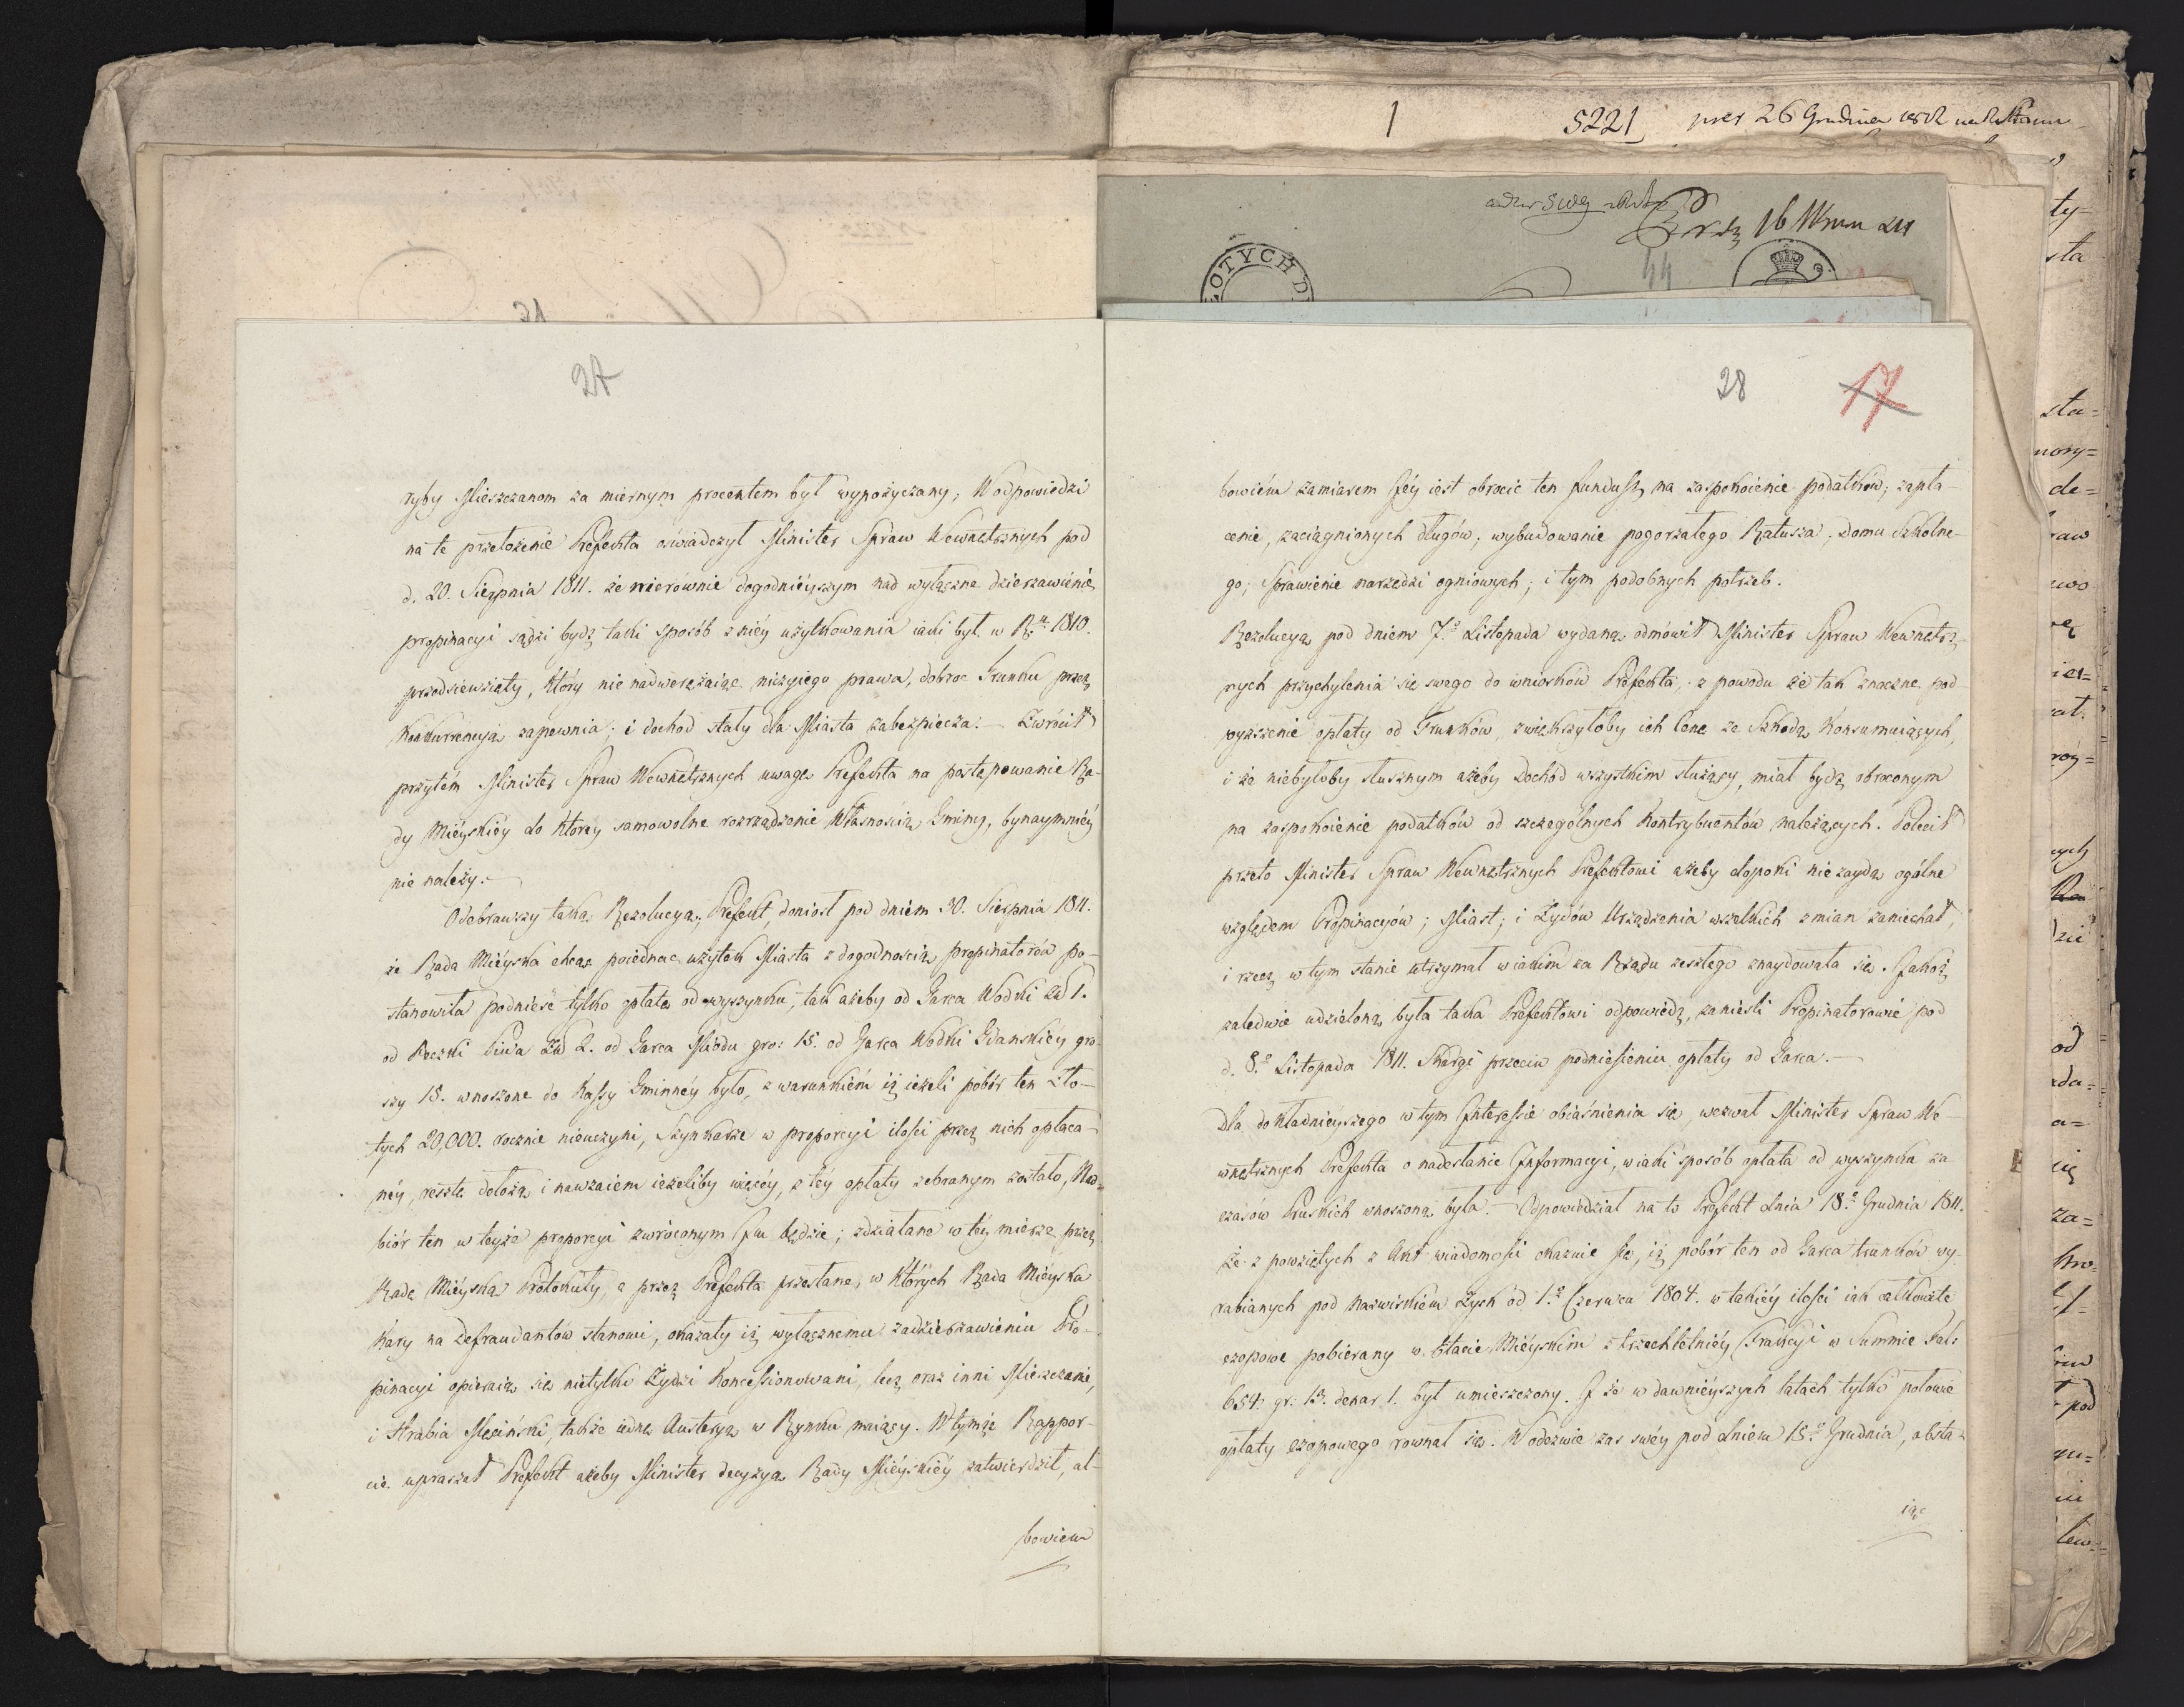 1 5221 26 Grudnia
16
44
OTYCH D
27
ryby Mieszczanom za miernym procentem był wypożyczany; W odpowiedzi
na te przełożenie Prefekta oświadczył Minister Spraw Wewnętrznych pod
d. 20. Sierpnia 1811. że nierównie dogodnieyszym nad wyłączne dzierzawienie
propinacyi sądzi bydź taki sposób z niéy użytkowania iaki był w R. 1810.
przedsiewzięty, który nie nadweręzaiąc niczyiego prawa, dobroc Trunku przez
Konkurrencyą zapewnia; i dochod stały dla Miasta zabezpiecza. — Zwrócił
przytém Minister Spraw Wewnętrznych uwagę Prefekta na postępowanie Ra-
dy Miéyskiéy do któréy samowolne rozrządzenie Własnością Gminy, bynaymniéy
nie należy. —
Odebrawszy taką Rezolucyą, Prefekt, doniosł pod dniem 30. Sierpnia 1811.
że Rada Miéyska chcąc poiednac użytek Miasta z dogodnością propinatorów po-
stanowiła podnieść tylko opłatę od wyszynku, tak ażeby od Garca Wodki Zł 1.
od Beczki Piwa Zł 2. od Garca Miodu gro: 15. od Garca Wodki Gdanskiéy gro-
szy 15. wnoszone do Kassy Gminnéy było, z warunkiém iż ieżeli pobór ten Zło-
tych 20,000. rocznie nieuczyni, Szynkarze w proporcyi ilości przez nich opłaca-
néy, resztę dołożą i nawzaiem ieżeliby więcéy, z téy opłaty zebranym zostało, Nad-
biór ten w teyże proporcyi zwróconym Im będzie; zdziałane w téy mierze przez
Radę Miéyską Protokuły, a przez Prefekta przesłane, w których Rada Miéyska
Kary na Defraudantów stanowi, okazały iż wyłącznemu zadzierzawieniu Pro-
pinacyi opieraią się nietylko Żydzi Koncessionowani, lecz oraz inni Mieszczanie,
i Hrabia Męciński, także iedną Austeryą w Rynku maiący. W tymże Rappor-
cie upraszał Prefekt ażeby Minister decyzyą Rady Miéyskiéy zatwierdził, al-
bowiem
28 17
bowiém zamiarem Jéy iest obrocic ten fundusz na zaspokoienie podatków; zapła-
cenie, zaciągnionych długów; wybudowanie pogorzałego Ratusza; Domu Szkolne-
go; Sprawienie narzędzi ogniowych; i tym podobnych potrzeb.
Rezolucyą pod dniem 7.º Listopada wydaną odmówił Minister Spraw Wewnętrz-
nych przychylenia się swego do wniosków Prefekta, z powodu że tak znaczne pod-
wyzszenie opłaty od Trunków, zwiększyłoby ich Cenę ze Szkodą Konsumuiących,
i że niebyłoby słusznym ażeby Dochód wszystkim służący, miał bydź obroconym
na zaspokoienie podatków od szczególnych Kontrybuentów należących. Polecił
przeto Minister Spraw Wewnętrznych Prefektowi ażeby dopoki nie zaydą ogólne
względem Propinacyów; Miast; i Żydów Urządzenia wszelkich zmian zaniechał,
i rzecz w tym stanie utrzymał w iakim za Rządu zeszłego znaydowała się. Jakoż
zaledwie udzieloną była taka Prefektowi odpowiedź, zanieśli Propinatorowie pod
d. 8.º Listopada 1811. Skargę przeciw podniesieniu opłaty od Garca. —
Dla dokładnieyszego w tym Interessie obiaśnienia się, wezwał Minister Spraw We-
wnętrznych Prefekta o nadesłanie Informacyi, w iaki sposób opłata od wyszynku za
czasów Pruskich wnoszoną była. — Odpowiedział na to Prefekt dnia 18.º Grudnia 1811.
Że z powziętych z Akt wiadomości okazuie się, iż pobór ten od Garca trunków wy-
rabianych pod nazwiskiem Zysk od 1.º Czerwca 1804. w takiéy ilości iak całkowite
czopowe pobierany w Etacie Miéyskim z trzechletniéy Frakcyi w Summie Tal:
654. gr: 13. denar. 1. był umieszczony. I że w dawnieyszych latach tylko połowie
opłaty czopowego rownał się. W odezwie zas swéy pod dniem 15.º Grudnia, obsta-
iąc